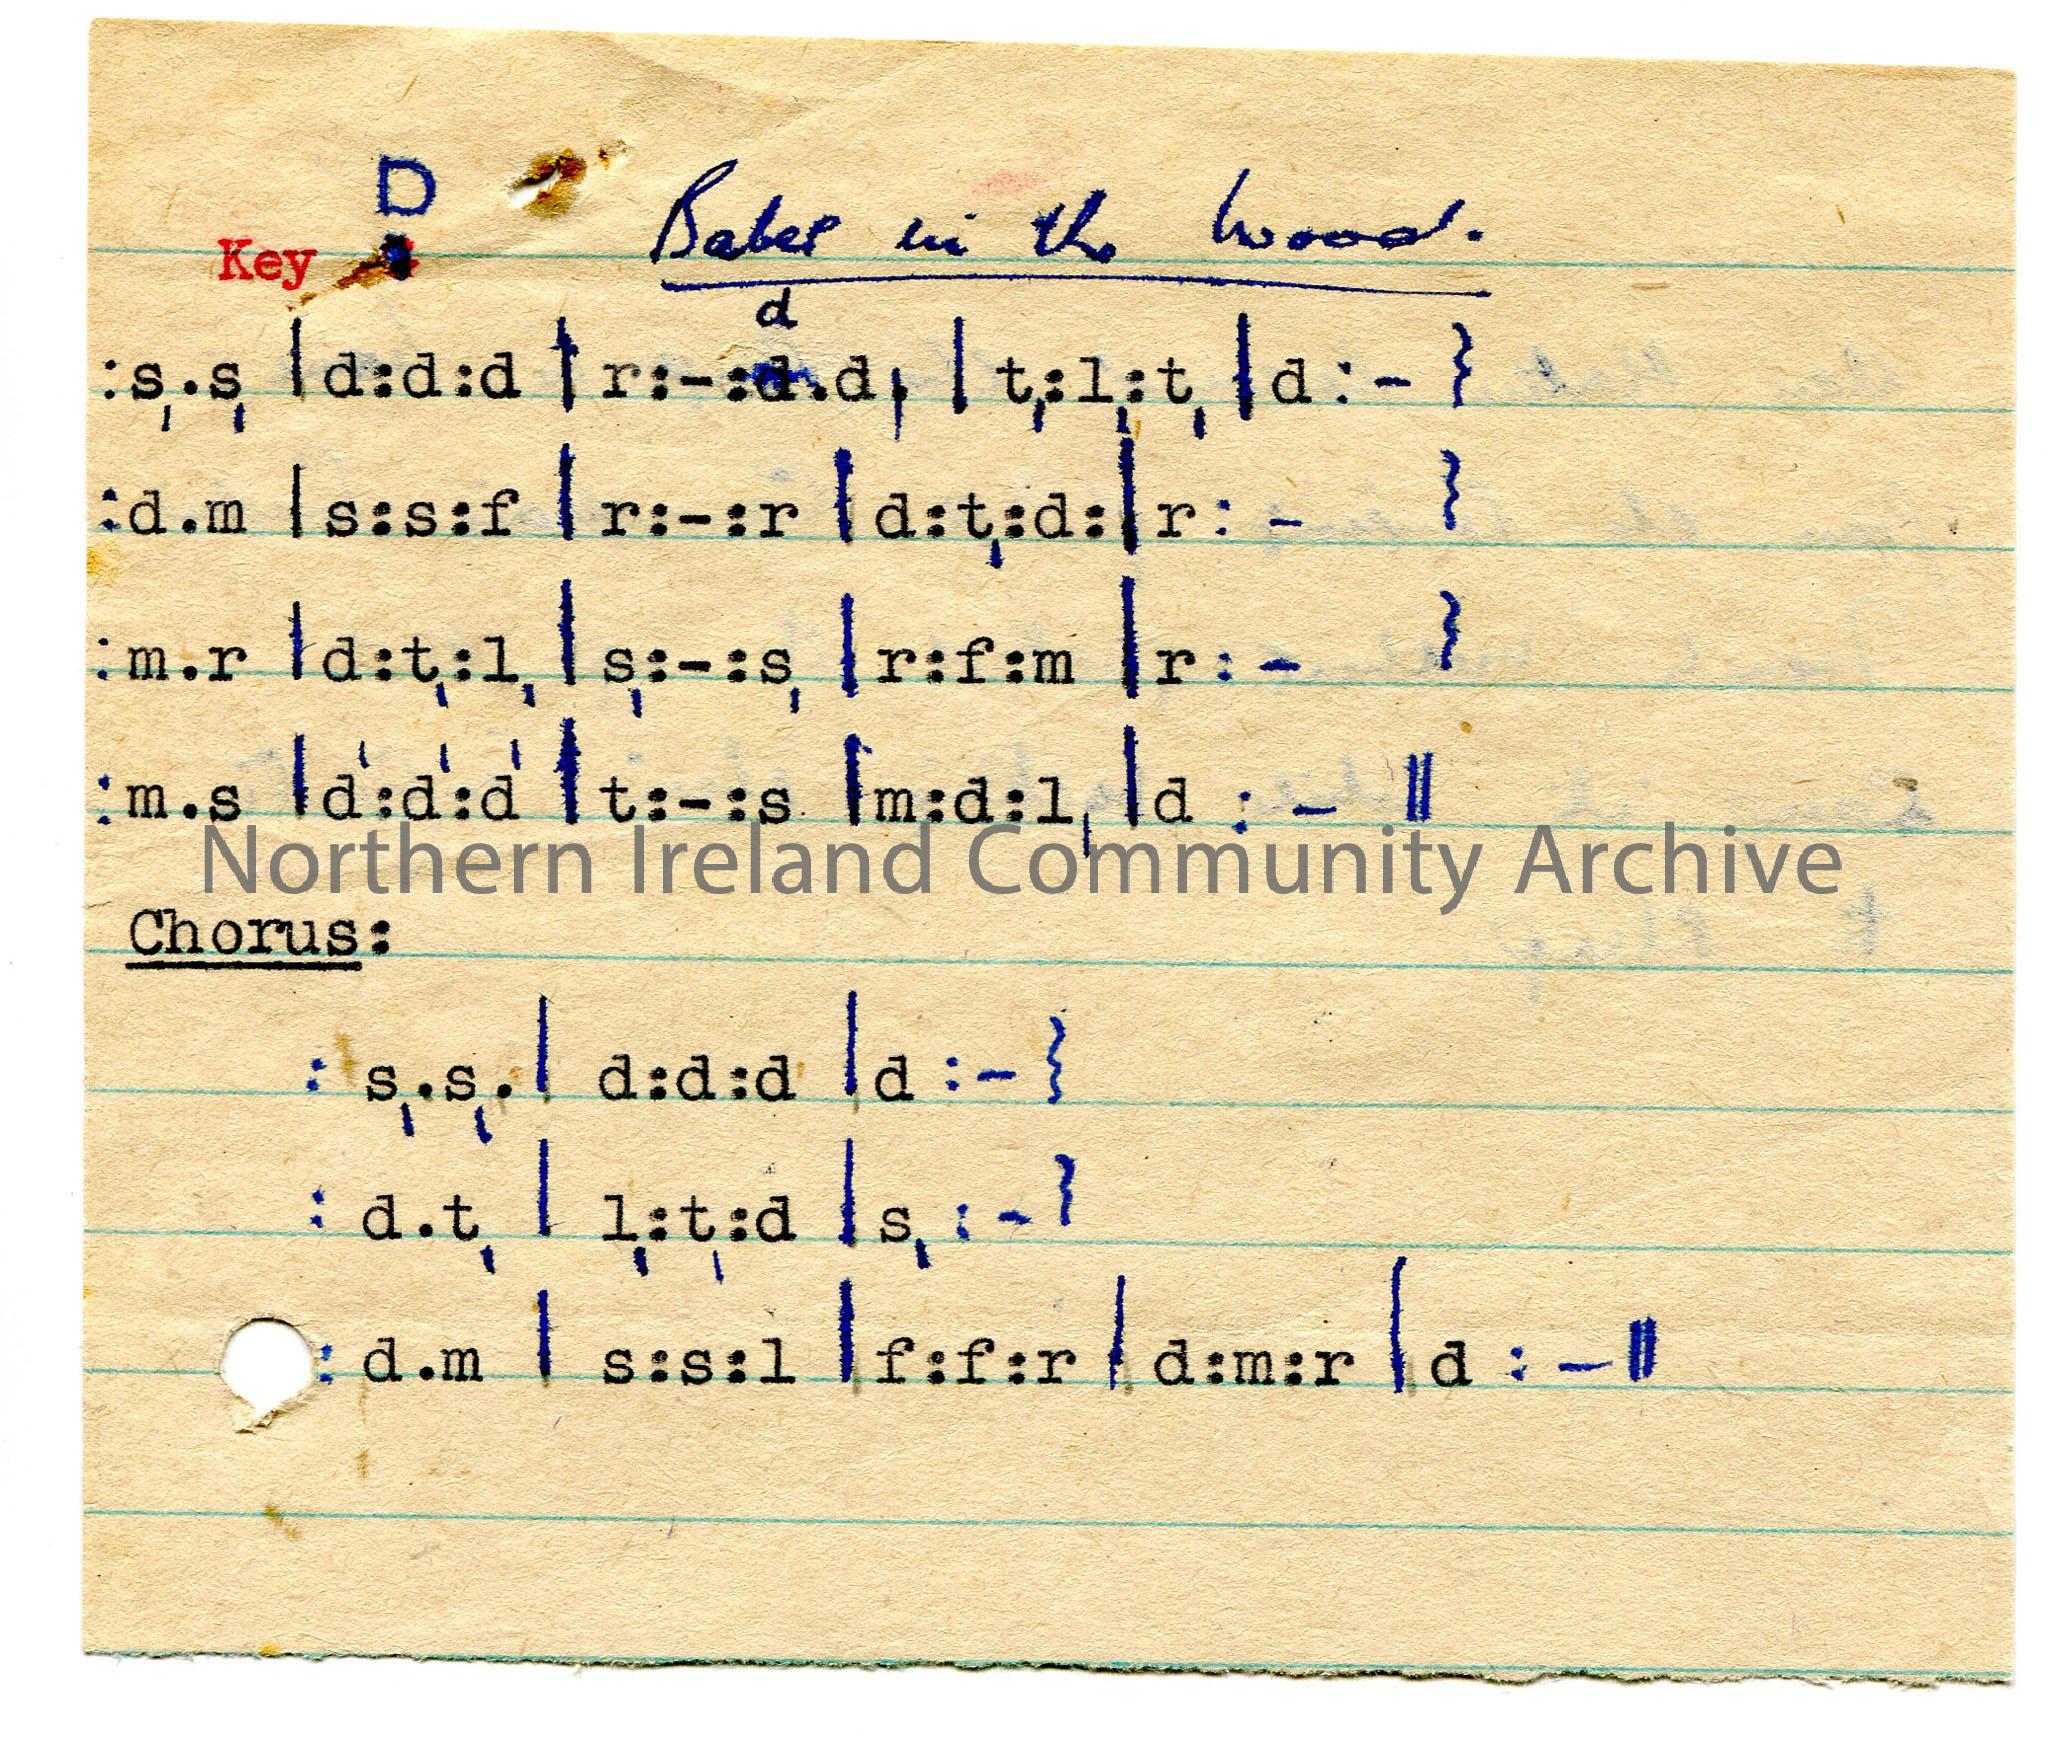 D
Key Babes in the Wood.
d
:s͵.s͵ | d:d:d | r:-:d.d, | t͵:l͵:t͵ | d:- }
:d.m | s:s:f | r:-:r | d:t͵:d: | r:- }
:m.r | d:t͵:l͵ | s͵:-:s͵ | r:f:m | r:- }
:m.s | d':d':d' | t:-:s | m:d:l͵ | d :- ||
Northern Ireland Community Archive
Chorus:
: s͵.s͵. | d:d:d | d :- }
: d.t͵ | l͵:t͵:d | s͵ :- }
: d.m | s:s:l | f:f:r | d:m:r | d :- ||